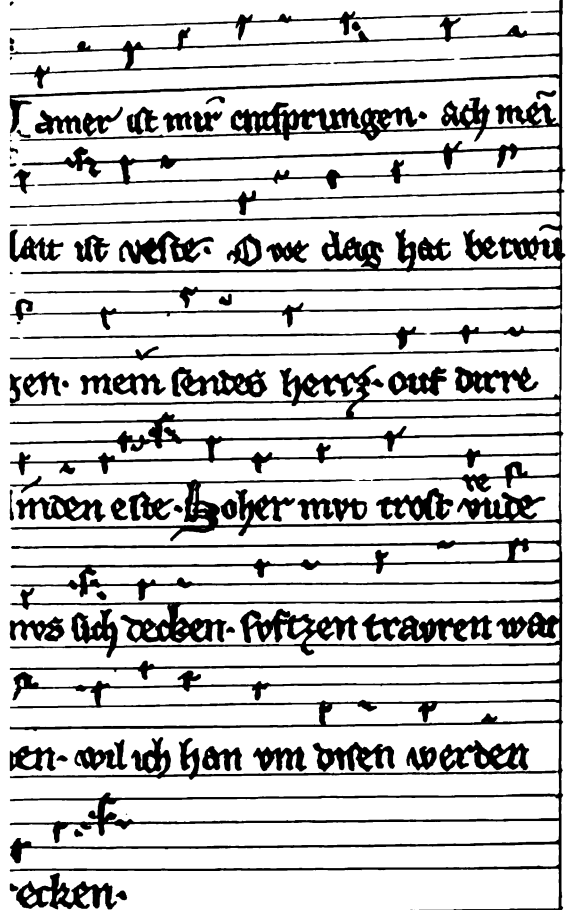 Jamer ist mir̄ entsprungen· ach mei̅
latt ist veste· Owe daz hat betwū
gen· mein sendes hercz· ouf dirre
linden este· Hoher mvt trost vnde
re
mvs sich decken· svftzen travren wat
en· wil ich han vm disen werden
ecken·